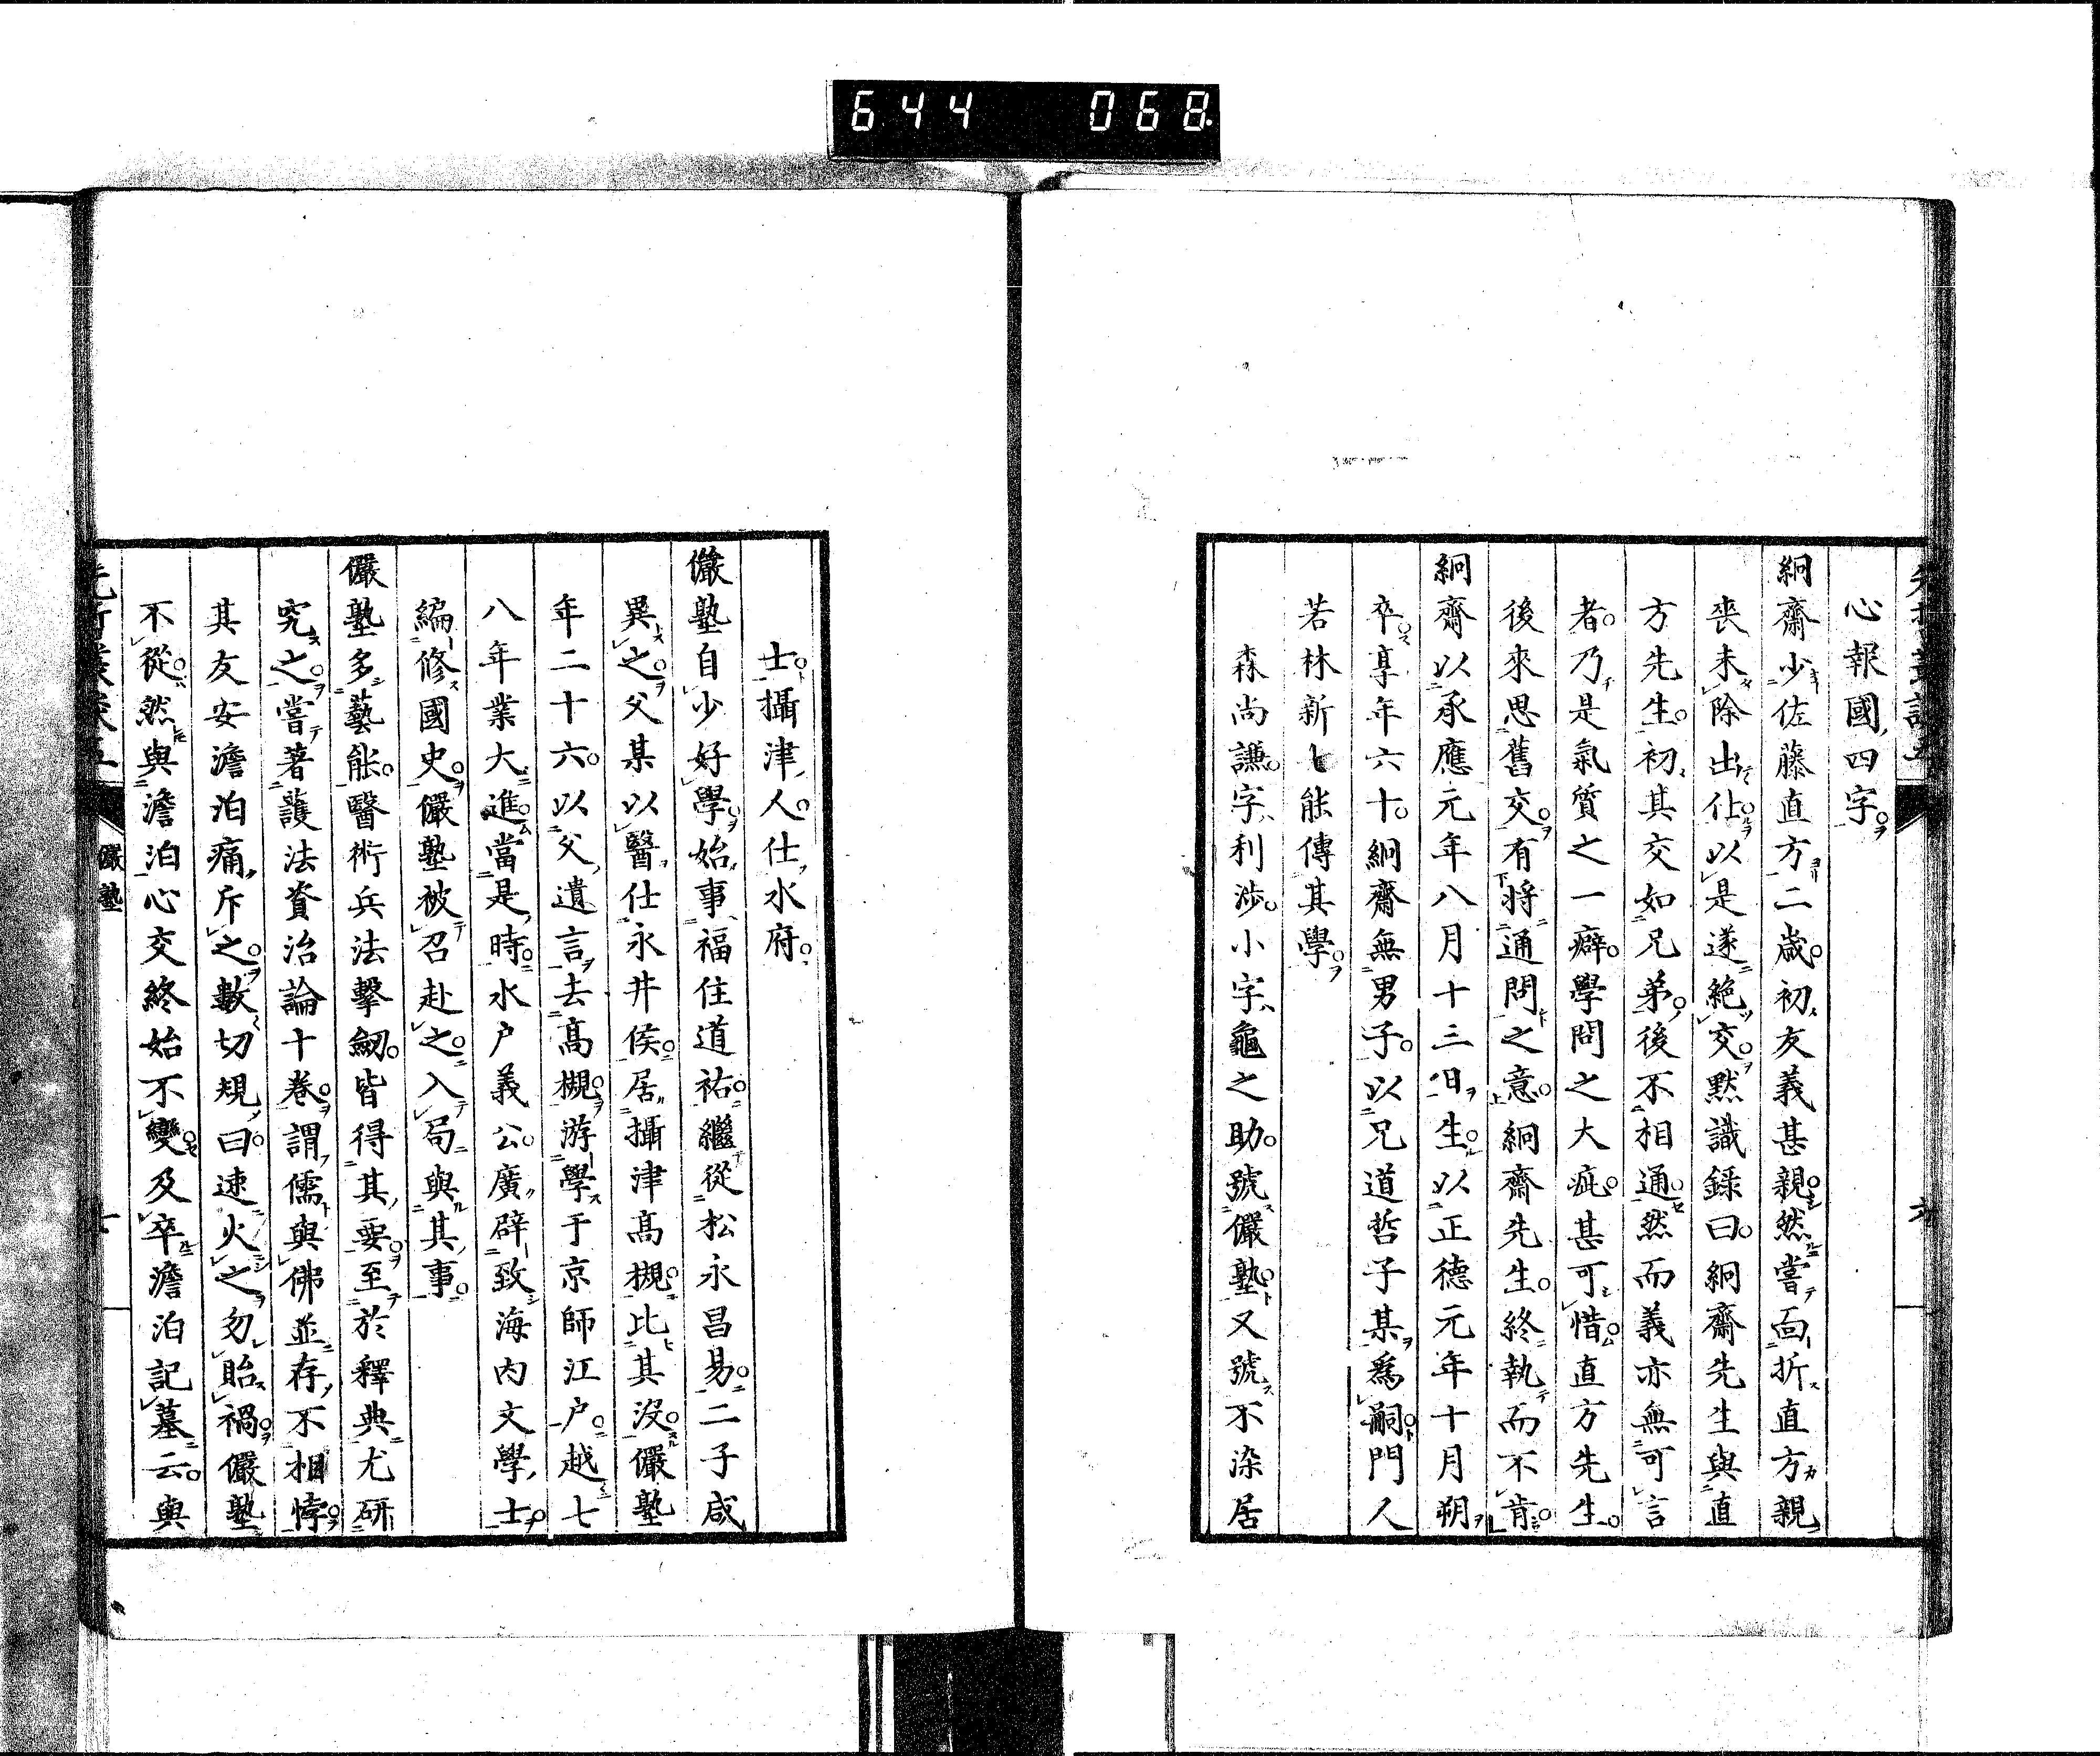 644 068
心報國四字
絅齋少佐藤直方二歲初友義甚親然嘗面折直方親
喪未除出仕以是遂絕交默識錄曰絅齋先生與直
方先生初其交如兄弟後不相通然而義亦無可言
者乃是氣質之一癖學問之大疵甚可惜直方先生
後來思舊交有將通問之意絅齋先生終執而不肯
絅齋以承應元年八月十三日生以正德元年十月朔
卒享年六十絅齋無男子以兄道哲子某爲嗣門人
若林新七能傳其學
森尚謙字利涉小字龜之助號儼塾又號不染居
士攝津人仕水府
儼塾自少好學始事福住道祐繼從松永昌易二子咸
異之父某以醫仕永井侯居攝津高槻比其沒儼塾
年二十六以父遺言去高槻游學于京師江戶越七
八年業大進當是時水戶義公廣辟致海內文學士
編修國史儼塾被召赴之入局與其事
儼塾多藝能醫術兵法擊劒皆得其要至於釋典尤研
究之嘗著護法資治論十卷謂儒與佛並存不相悖
其友安澹泊痛斥之數切規曰速火之勿貽禍儼塾
不從然與澹泊心交終始不變及卒澹泊記墓云與
儼塾